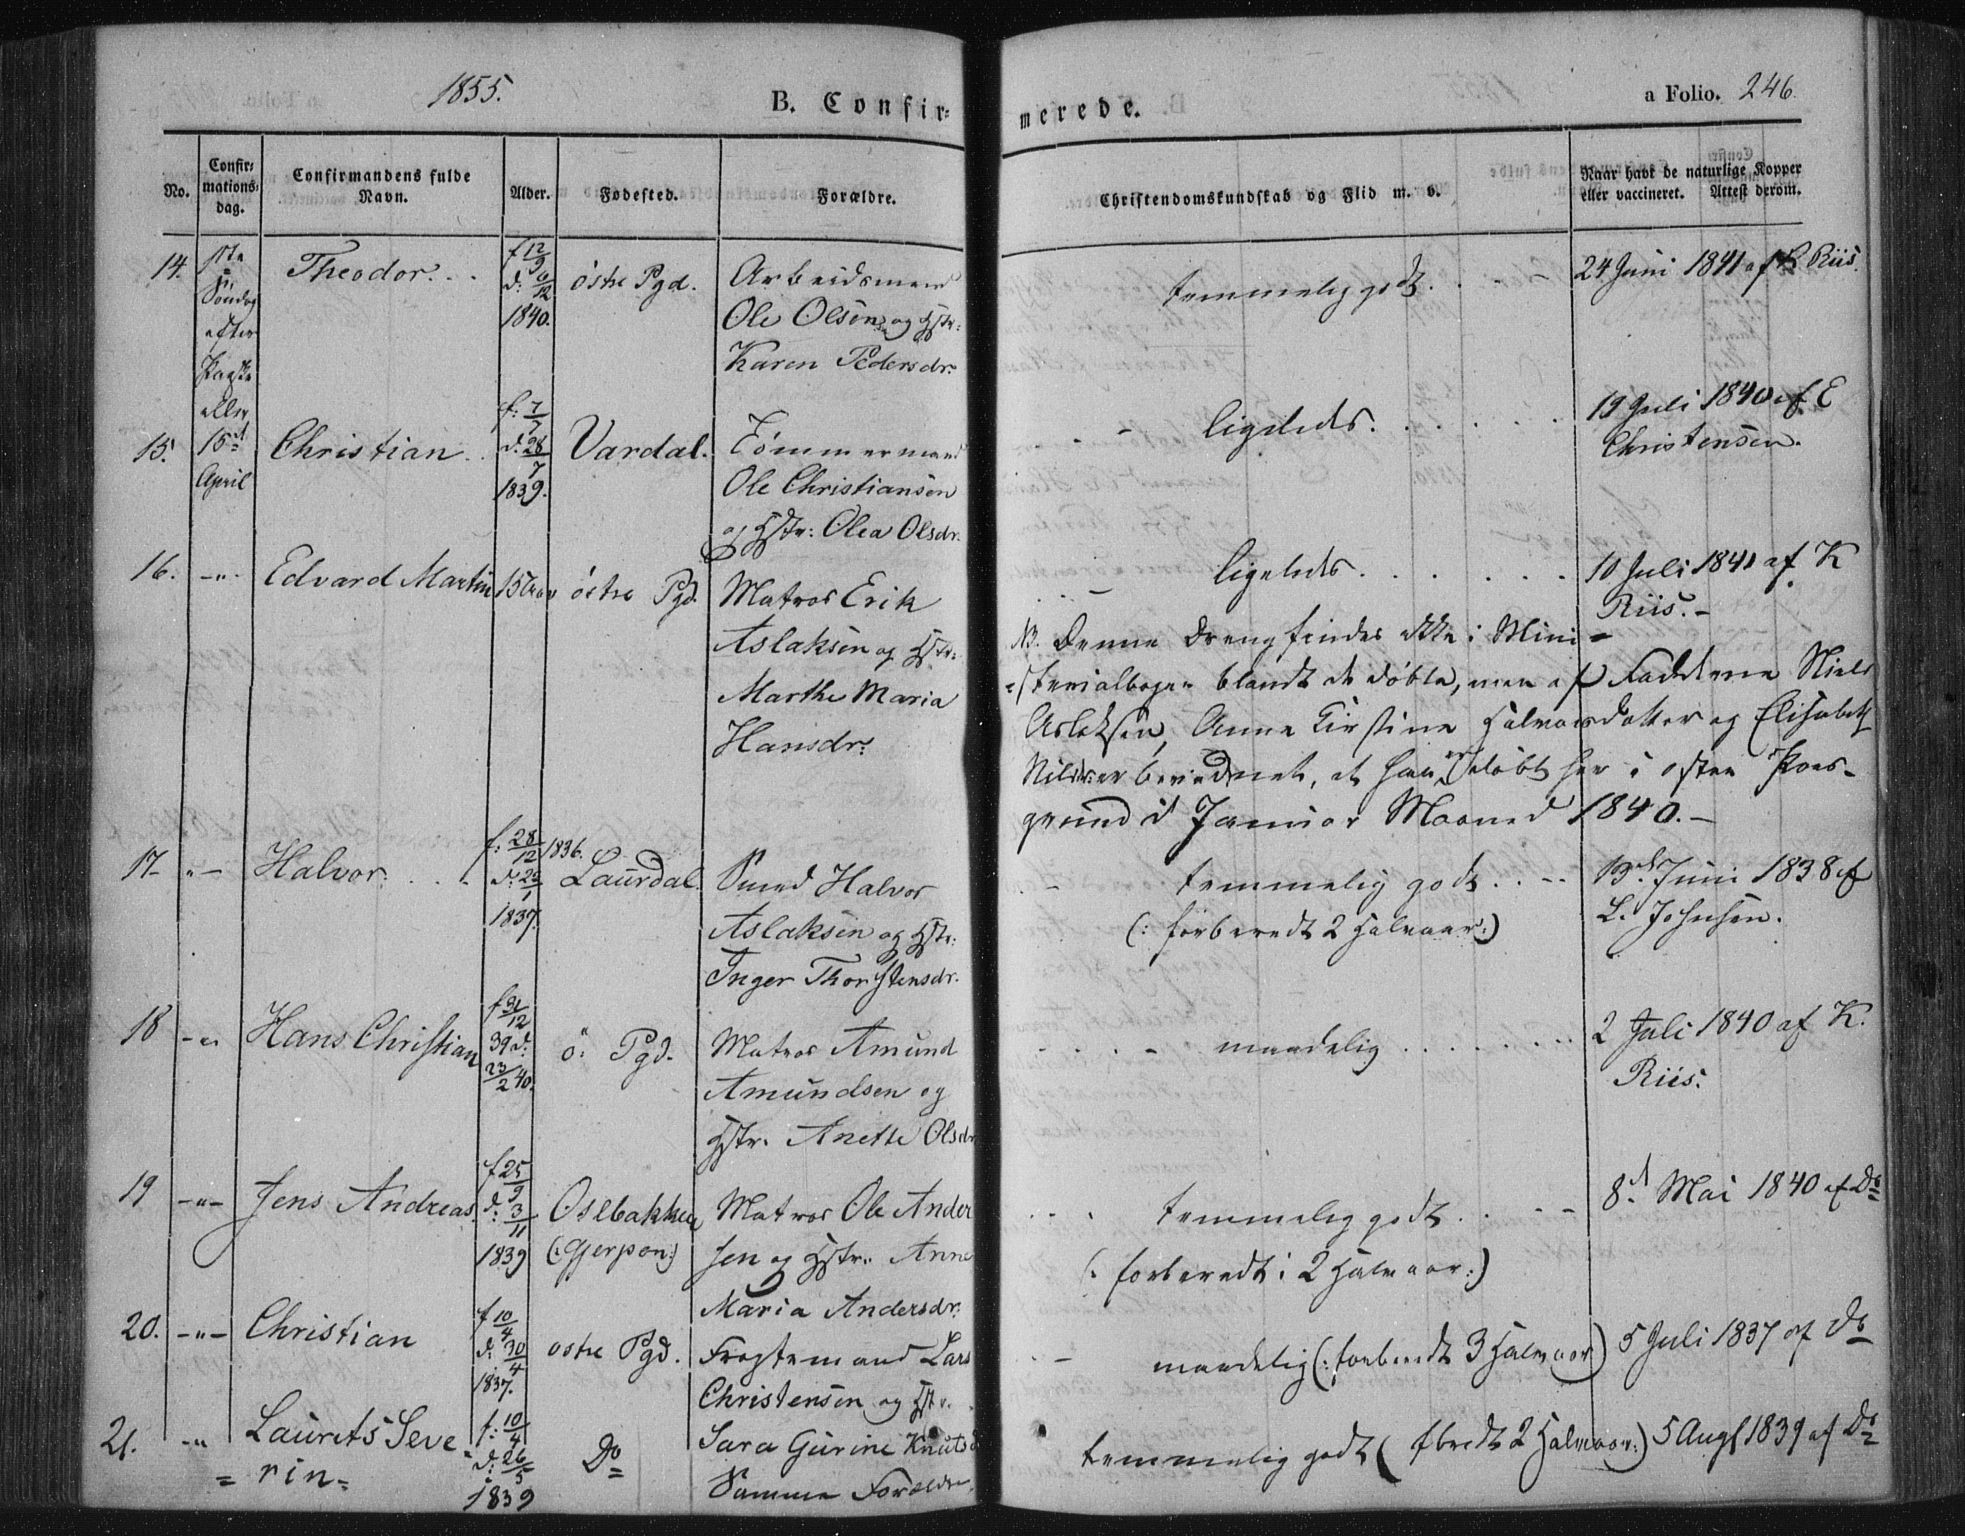 1855.
B. Confirmerede.
a Folio. 246.
No.
Confirmationsdag.
Confirmandens fulde Navn.
Alder.
Fødested.
Forældre.
Christendomskundskab og Flid m. v.
Naar havt de naturlige Kopper eller vaccineret. Attest derom.
14.
1ste
Søndag
efter
Paaske
eller
15d
April
Theodor.
f 12/9
d: 6/12
1840.
østre Pgd.
Arbeidsmand
Ole Olsen og Hstr:
Karen Pedersdr.
temmelig godt.
24 Juni 1841 af K Riis.
15.
Christian
f: 7/7
d: 28/7
1839.
Vardal.
Tømmermand
Ole Christiansen
og Hstr: Olea Olsdr.
ligeledes.
19 Juli 1840 af E
Christensen.
16. -"-
Edvard Martin
15 Aar
østre Pgd.
Matros Erik
Aslaksen og Hstr:
Marthe Maria
Hansdr:
ligeledes.
10 Juli 1841 af K
Riis.-
NB. Denne Dreng findes ikke i Mini=
=sterialbogen blandt de døbte, men af Fadderne Niels
Aslaksen, Anne Kirstine Halvorsdatter og Elisabeth
er bevidnet, at han er døbt her i østre Pors-
grund i Januar Maaned 1840.-
17- "-
Halvor.
f: 28/12 1836.
d: 25/1
1837.
Laurdal.
Smed Halvor
Aslaksen og Hstr:
Inger Thorstensdr.
temmelig godt.
(: forberedt 2 Halvaar:)
13d Juni 1838 af
L. Johnsen.
18 -"-
Hans Christian
f 31/12
39 d:
23/2 40.
ø: Pgd.
Matros Amund
Amundsen og
Hstr. Anette Olsdr
maadelig
2 Juli 1840 af K.
Riis.
19 -"-
Jens Andreas.
f 25/9
d: 3/11
1839
Oselbakken
(:Gjerpen:)
Matros Ole Ander
sen og Hstr: Anne
Maria Andersdr.
temmelig godt.
(: forberedt i 2 Halvaar:)
8d Mai 1840 af Do
20. -"-
Christian
f 10/4
d: 30/4
1837.
østre Pgd.
Fragtemand Lars
Christensen og Hstr.
Sara Gurine Knutsd
maadelig (: forberedt 3 Halvaar)
5 Juli 1837 af Do
21. -"
Laurits Seve
= rin=
f: 10/4
d: 26/5
1839
Do
Samme Forældre
temmelig godt ( fbredt 2 Halvaar:)
5 Augs 1839 af Do